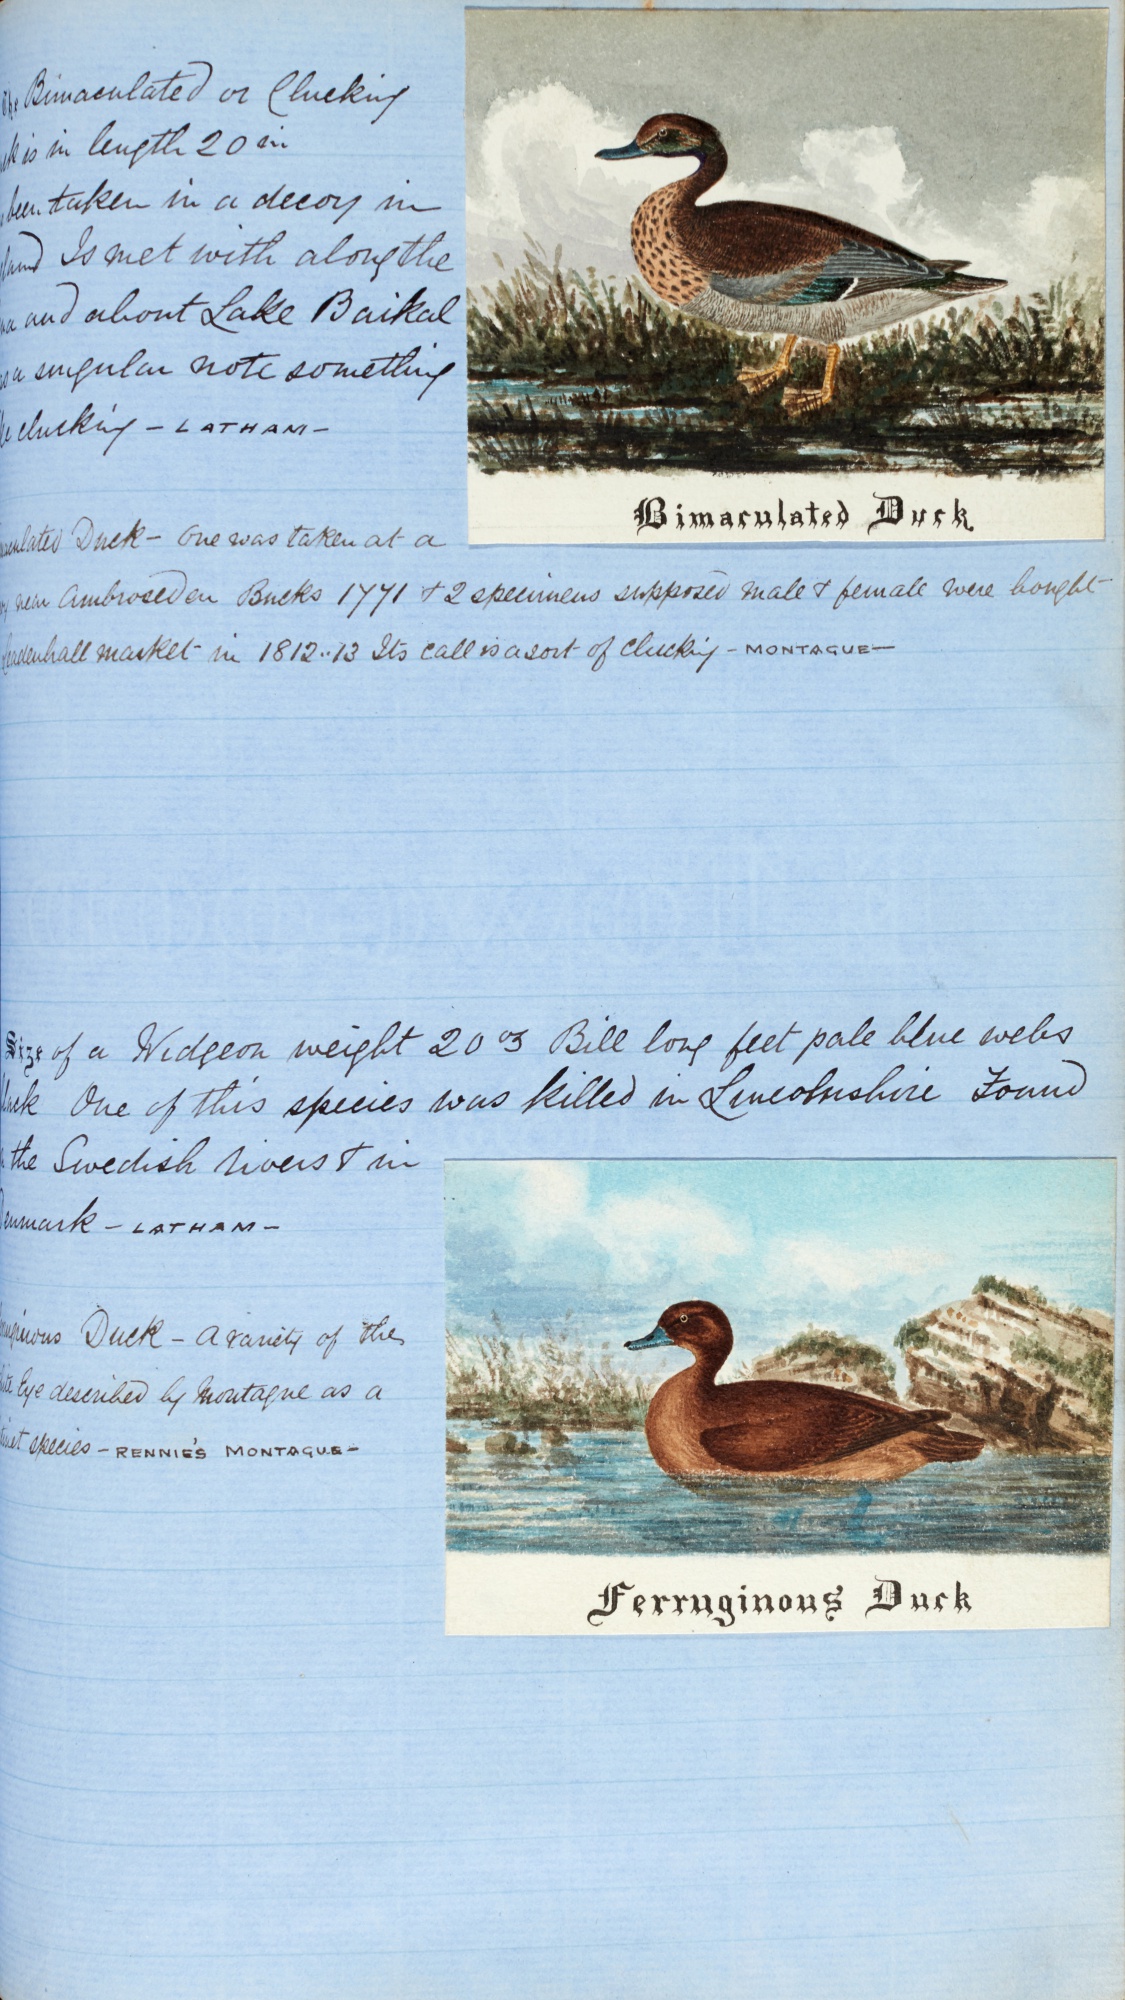 The Bimaculated or Clucking
is in length 20 in
been taken in a decoy in
Is met with along the
and about Lake Baikal
a singular note something
clucking - LATHAM -
Bimaculated Duck
Duck - One was taken at a
near Ambroseden Bucks 1771 & 2 specimens supposed male & female were bought
Leadenhall market in 1812..13 Its call is a sort of clucking - MONTAGUE -
Size of a Widgeon weight 20 oz Bill long feet pale blue webs
black One of this species was killed in Lincolnshire Found
the Swedish rivers & in
Denmark - LATHAM -
Duck - A variety of the
Eye described by Montague as a
species - RENNIE'S MONTAGUE -
Ferruginous Duck